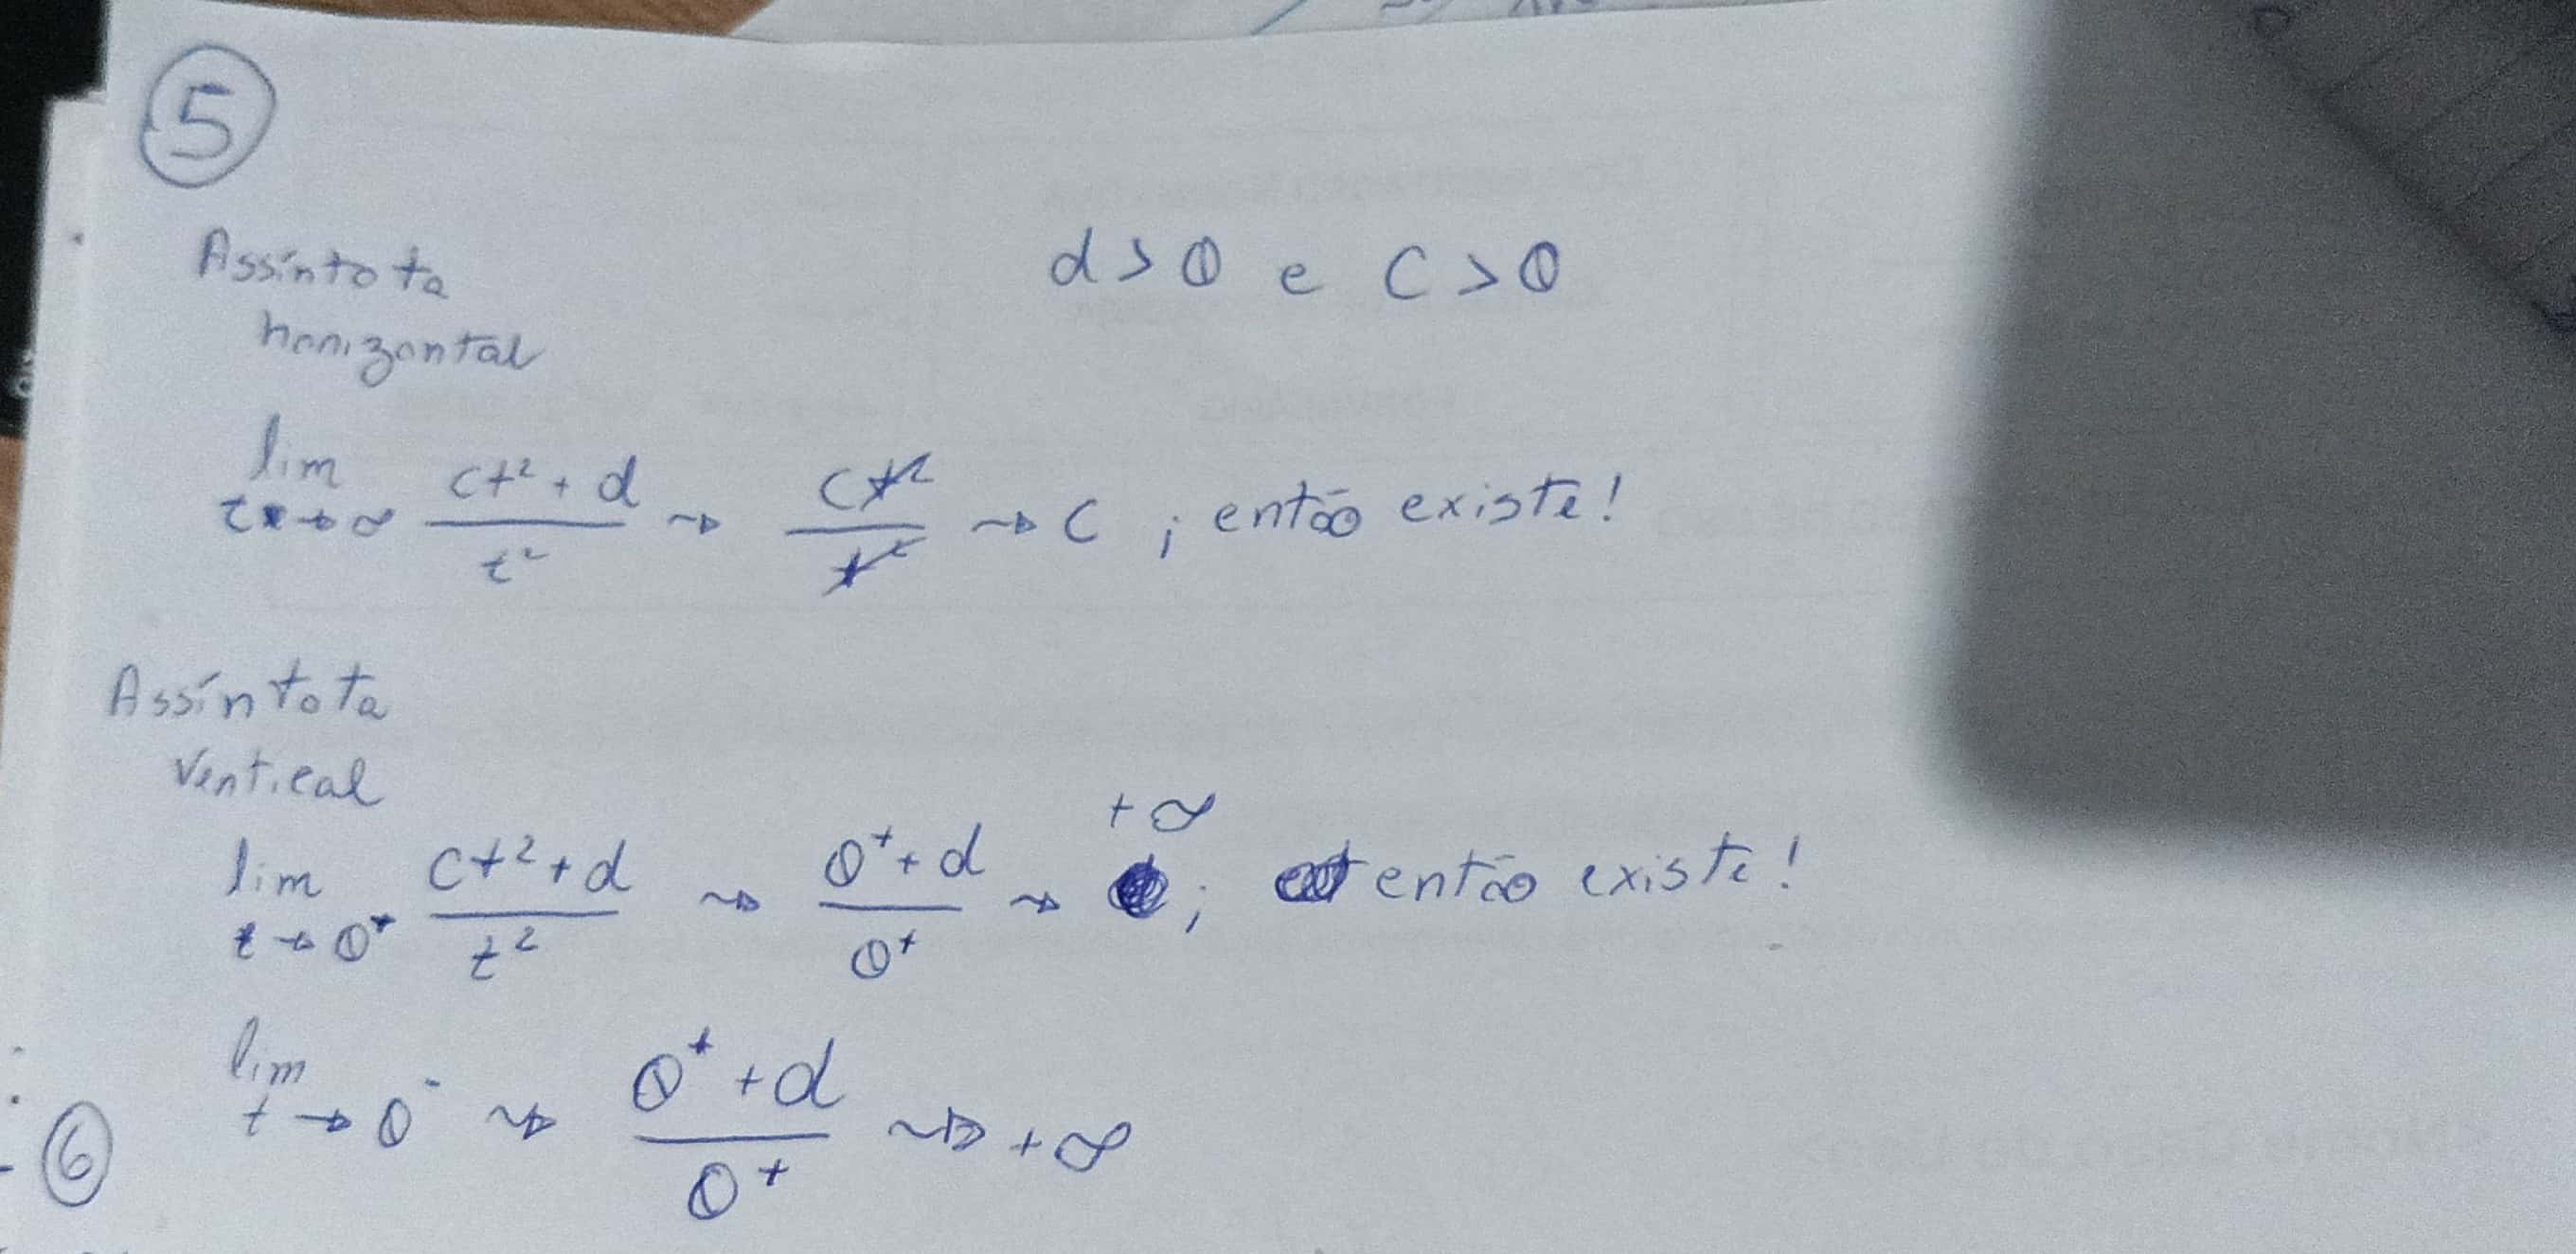 5
Assíntota
horizontal
d > 0 e C > 0
lim t→∞ (ct² + d)/t² ⇝ (ct²)/(t²) ⇝ C ; então existe!
Assíntota
Vertical
lim t→0⁺ (ct² + d)/t² ⇝ (0⁺ + d)/0⁺ ⇝ +∞ ; então existe!
lim t→0⁻ ⇝ (0⁺ + d)/0⁺ ⇝ +∞
6